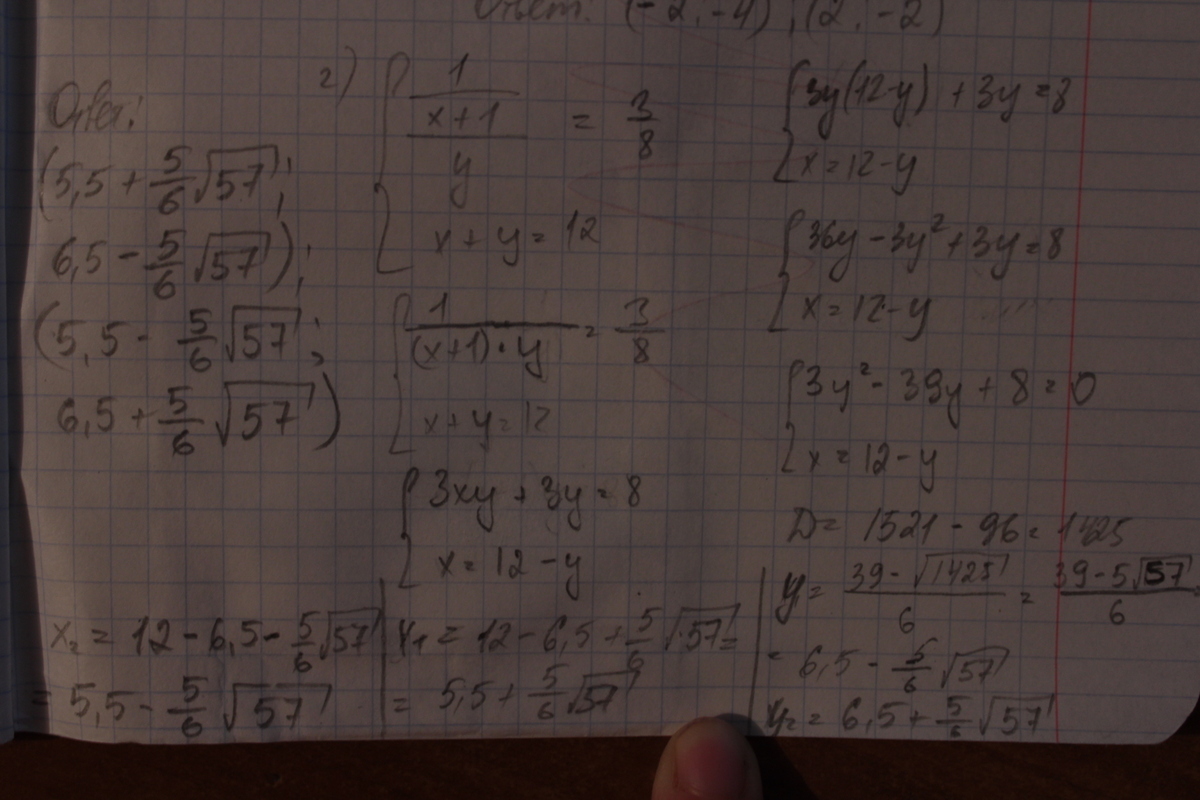 Ответ: (-2; -4); (2; -2)
Ответ:
(5,5 + 5/6 √57;
6,5 - 5/6 √57);
(5,5 - 5/6 √57;
6,5 + 5/6 √57)
г) { 1/((x+1)/y) = 3/8
x + y = 12
{ 1/((x+1)·y) = 3/8
x + y = 12
{ 3xy + 3y = 8
x = 12 - y
{ 3y(12-y) + 3y = 8
x = 12 - y
{ 36y - 3y² + 3y = 8
x = 12 - y
{ 3y² - 39y + 8 = 0
x = 12 - y
D = 1521 - 96 = 1425
y = (39 - √1425)/6 = (39 - 5√57)/6 =
= 6,5 - 5/6 √57
y₂ = 6,5 + 5/6 √57
x₁ = 12 - 6,5 + 5/6 √57 =
= 5,5 + 5/6 √57
x₂ = 12 - 6,5 - 5/6 √57
= 5,5 - 5/6 √57